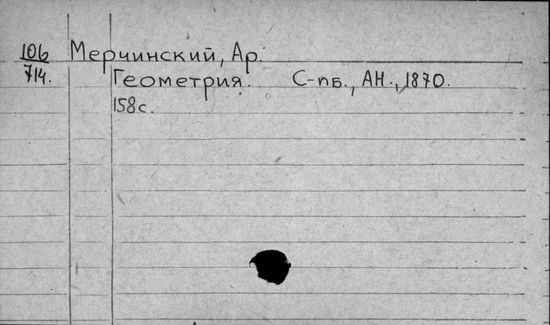 106 Мерчинский, Ар.
714. Геометрия. С-пб., АН., 1870.
158с.